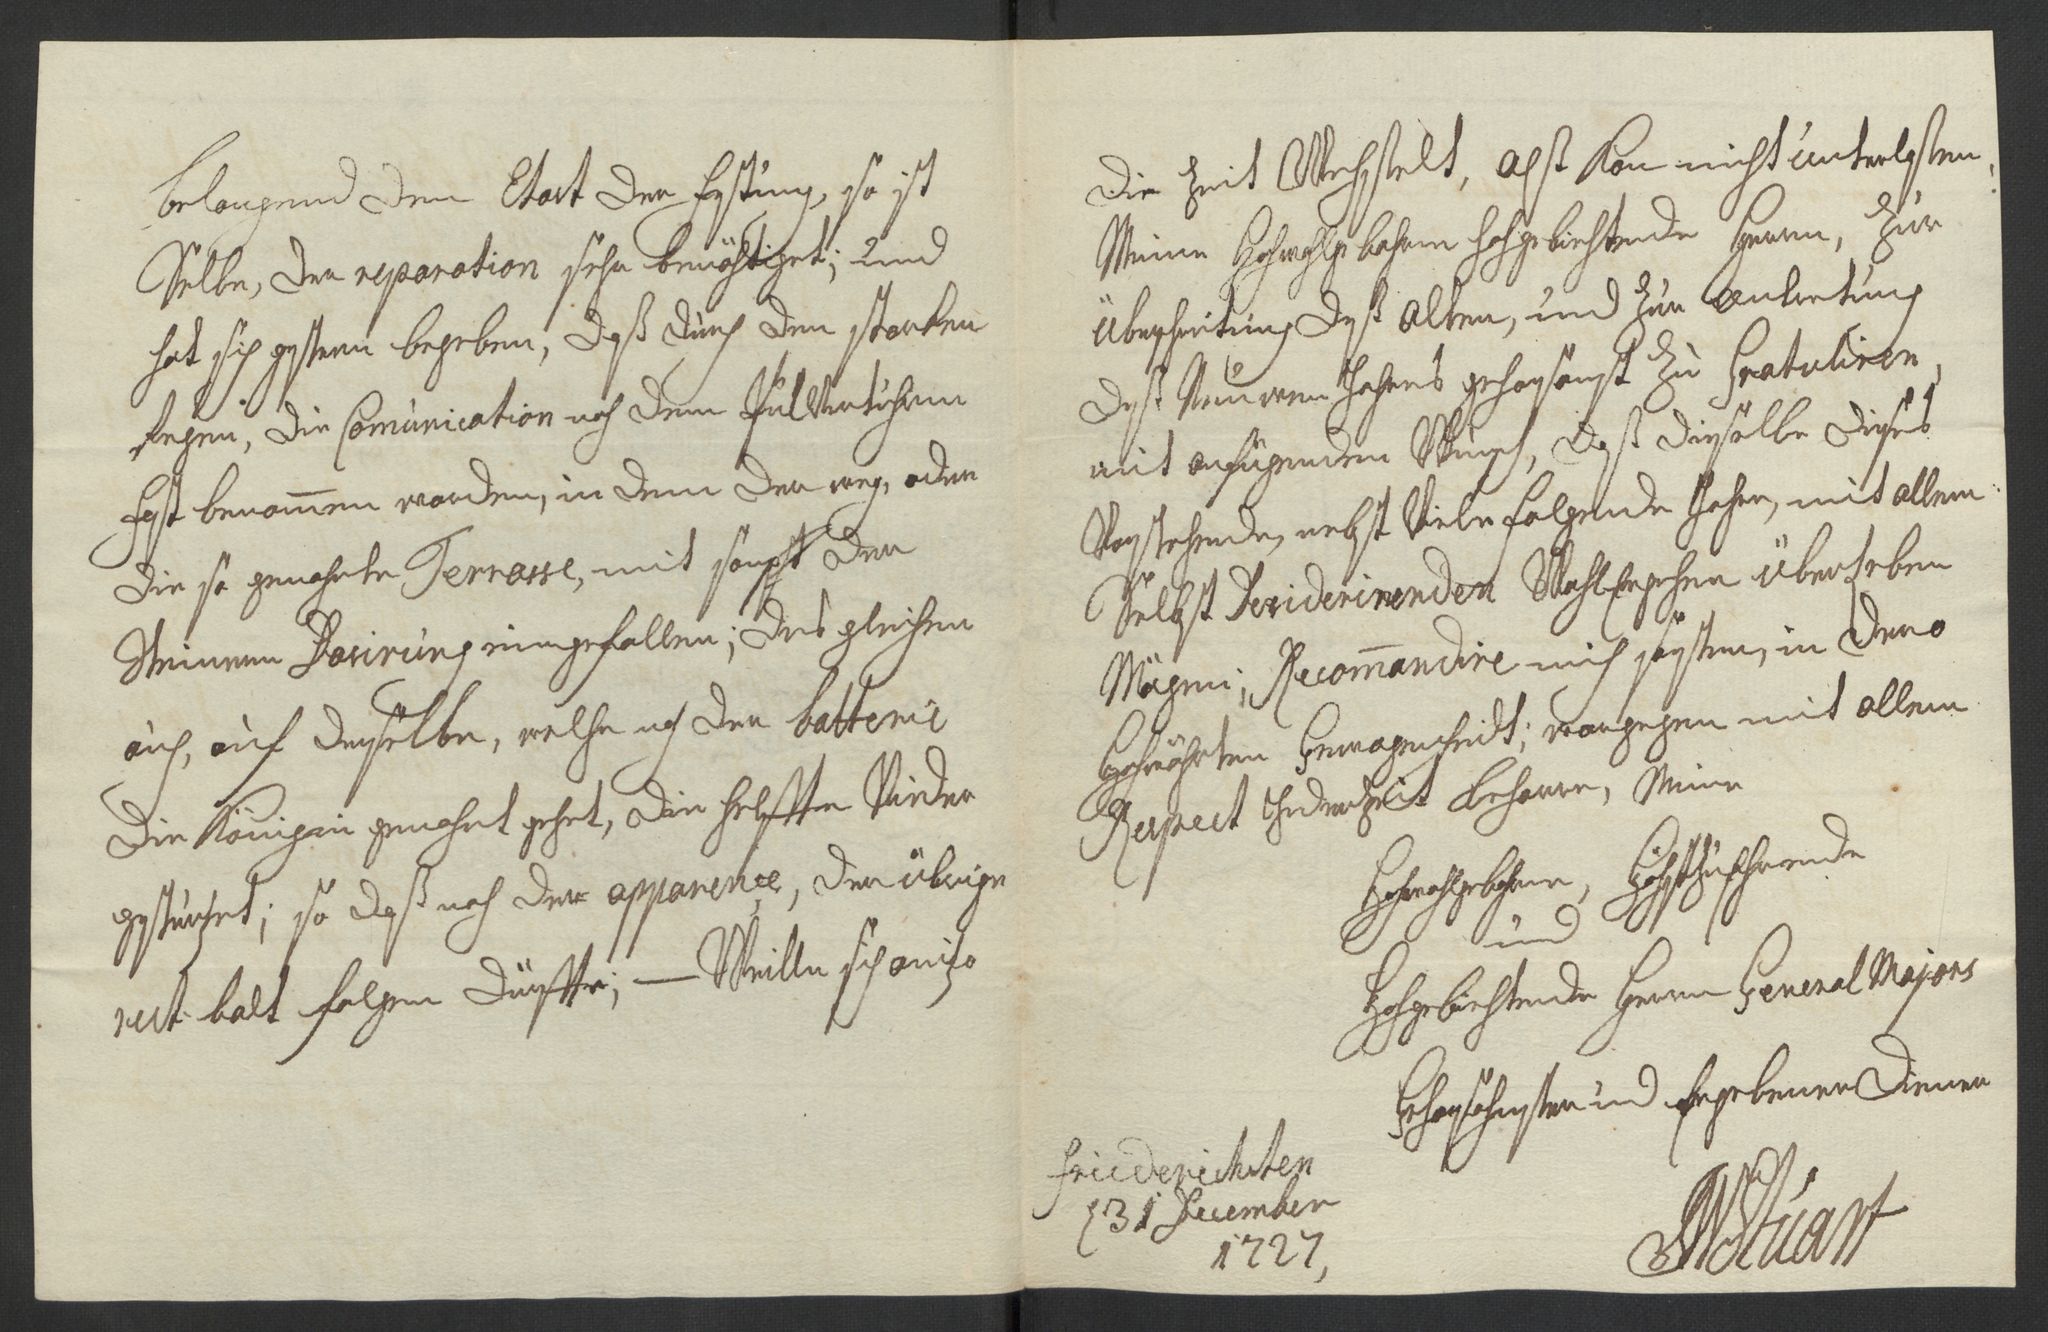 belangend dem Etat der Festung, so ist
Selbe, der reparation sehr benöhtiget; und
hat sich gestern begeben, daß durch den starken
Regen, die Comunication nach dem Pulverturhm
fast benommen worden, in dem der weg, oder
die so genahnte Terrasse, mit sampt der
Steinern Dosirung eingefallen; des gleichen
auch, auf derselben, welche nach der batterie
die Königin genahnt gehet, die helffte Nieder
gestürtzet; so daß nach der apparence, der übrige
rest balt folgen dürffte; — Weillen sich anitzo
die Zeit Wechsselt, alß Kan nicht unterlassen,
Meine Hochwohlgebohrne hochgebiehtende Herrn, Zur
überschreitung deß alten, und Zur antretung
deß Neuwen Jahres gehorsamst Zu Gratuliren,
mit anfügendem Wunsch, daß dieselbe dieses
Vorstehende, nebst Viele folgende Jahre, mit allem
Selbst desiderirenden Wohl Ergehen überleben
Mögen; Recommandire mich sestens, in dero
Hochwährten Gewogenheidt; wargegen mit allem
Respect Jederzeit beharre, Meine
Hochwohlgebohrne, Höchstzuehrende
und
Hochgebiehtende Herrn General Majors
Gehorsahmster und Ergebener Diener
Friederichsten
31 December
1727,
Stuart